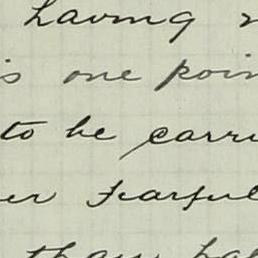 having
is one poin
to be carri
er fearful